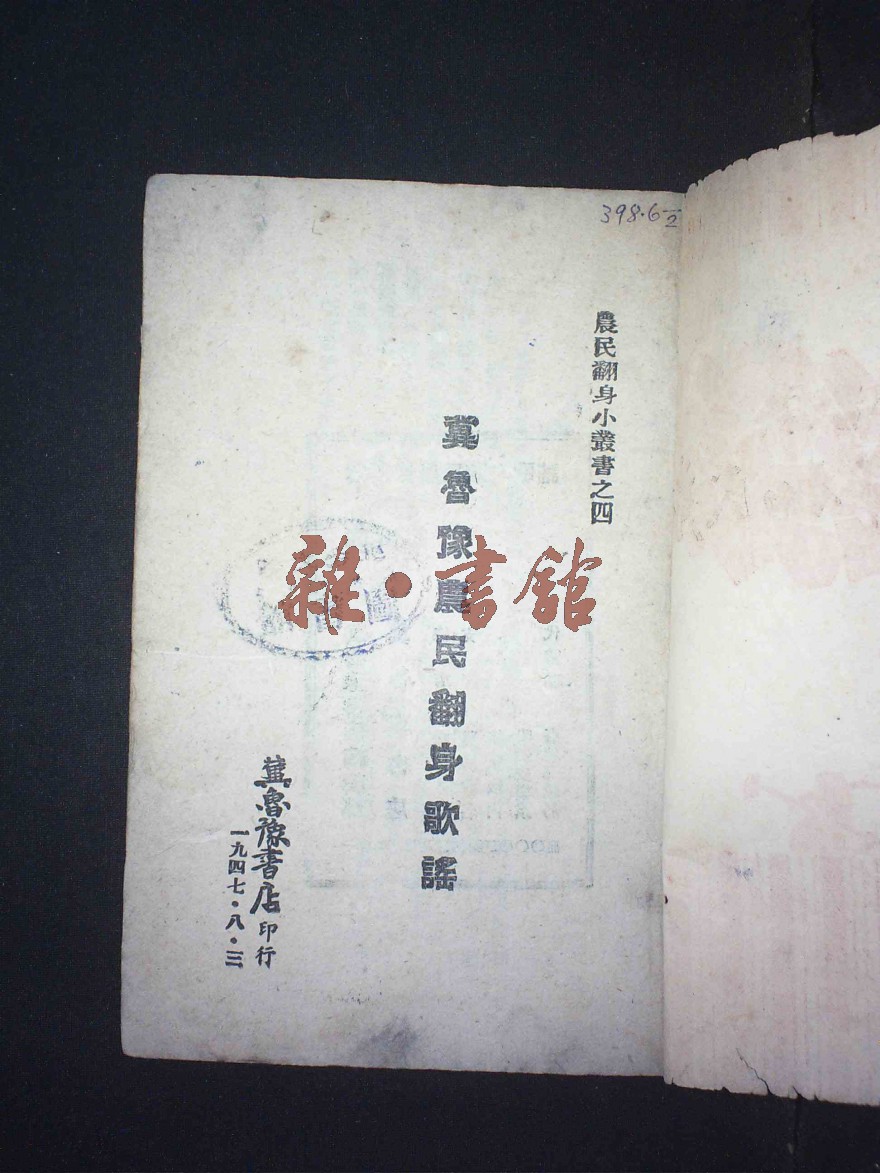 398·6 一/2
農民翻身小叢書之四
冀魯豫農民翻身歌謠
冀魯豫書店印行
一九四七·八·三
雜·書舘